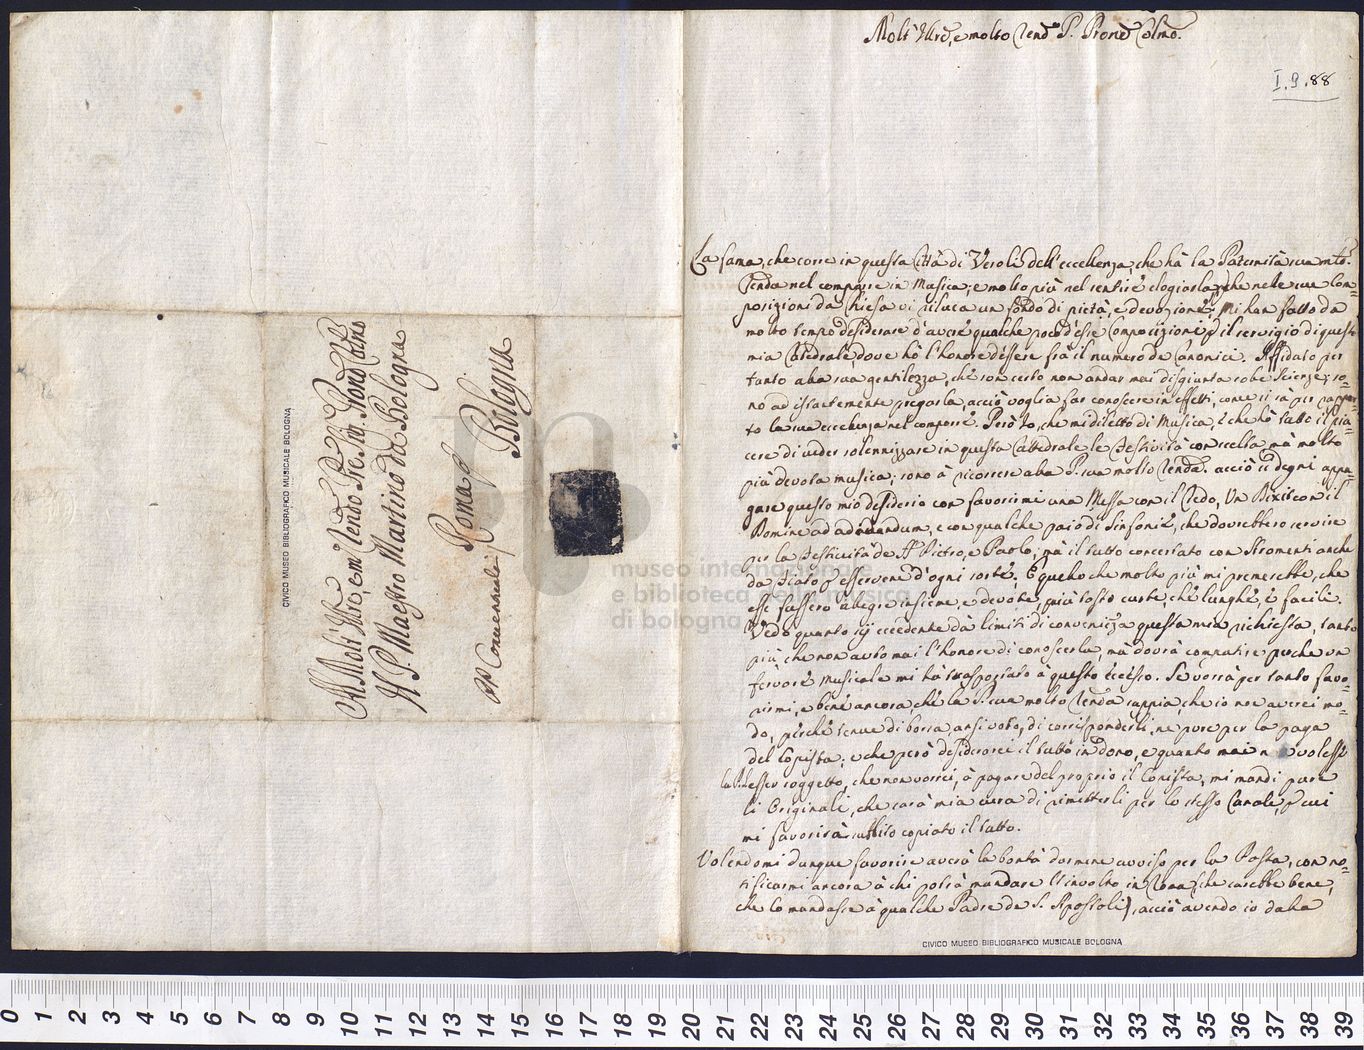 Al Molt' Illre, e m Rendo Pre Sig. Prone Colmo
Il P. Maestro Martino da Bologna
Roma p
Bologna
Conventuali
CIVICO MUSEO BIBLIOGRAFICO MUSICALE BOLOGNA
Molt' Illre, e molto Rend P. Prone Colmo.
I.9.88
La fama, che corre in questa Città di Veroli dell'eccellenza, che hà la Paternità sua mto.
Renda nel comporre in Musica; e molto più nel sentire elogiarla, che nele sue Com=
posizioni da Chiesa vi riluca un fondo di pietà, e devozione. Mi han fatto da
molto tempo desiderare d'avere qualche poco d'esse Composizioni p il servigio di questa
mia Catedrale, dove hò l'honore d'essere frà il numero de Canonici. Affidato per
tanto alla sua gentilezza, che son certo non andar mai disgiunta robe Scienze; so=
no ad istantemente pregarla, acciò voglia far conoscere in effetti, come si sà per rappor=
to la sua eccellenza nel comporre. Però Io, che mi diletto di Musica, e che hò tutto il pia=
cere di veder solennizzare in questa Catedrale le Festività con scella, mà molto
più devota musica; sono à ricorrere alla P. sua molto Renda. acciò si degni appa=
gare questo mio desiderio con favorirmi una Messa con il Credo, Un Dixit con il
Domine ad adiuvandum, e con qualche paio di Sinfonie, che dovrebbero servire
per la Festività de SS. Pietro, e Paolo; mà il tutto concertato con Stromenti anche
da fiato p esservene d'ogni sorte. E quello che molto più mi premerebbe, che
esse fussero allegre insieme, e devote, più tosto curte, che lunghe, e facili.
Vedo quanto sij eccedente dà limiti di convenienza questa mia richiesta, tanto
più che non avuto mai l'honore di conoscerla, mà dovrà compatire perche un
fervore Musicale mi hà trasportato à questo eccesso. Se vorrà per tanto favo=
rirmi, e bene ancora, che la P. sua molto Renda sappia, che io non averei mo=
do, perche tenue di borsa, anzi voto, di corrisponderli, ne pure per la paga
del Copista; e che però desiderarei il tutto in dono, e quanto mai n volesse
esser soggetto, che non vorrei, à pagare del proprio il Copista, mi mandi pure
li Originali, che sarà mia cura di rimetterli per lo stesso Canale, p cui
mi favorirà subbito copiato il tutto.
Volendomi dunque favorire averà la bontà darmene avviso per la Posta, con no=
tificarmi ancora à chi potrà mandare l'involto in Roma (che sarebbe bene,
che lo mandasse à qualche Padre de S. Apostoli), acciò avendo io dalla
CIVICO MUSEO BIBLIOGRAFICO MUSICALE BOLOGNA
museo internazionale
e biblioteca della musica
di bologna
0 1 2 3 4 5 6 7 8 9 10 11 12 13 14 15 16 17 18 19 20 21 22 23 24 25 26 27 28 29 30 31 32 33 34 35 36 37 38 39